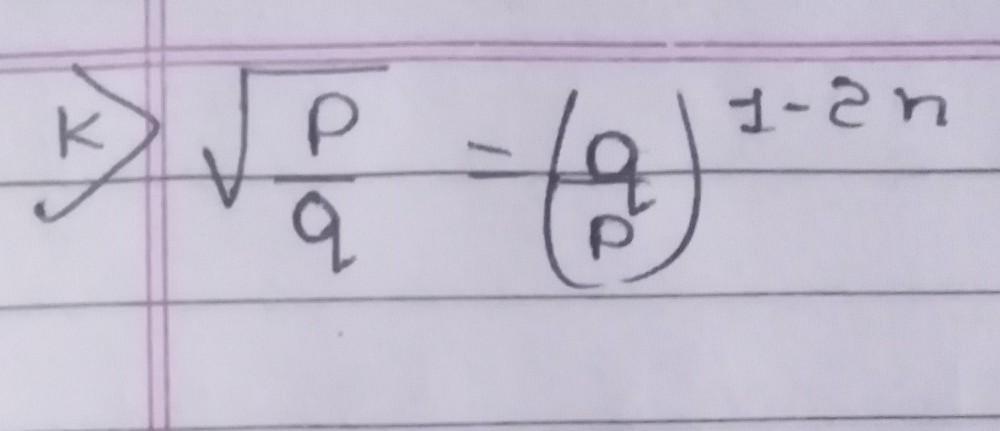 K) √(p/q) = (q/p)^(1-2n)